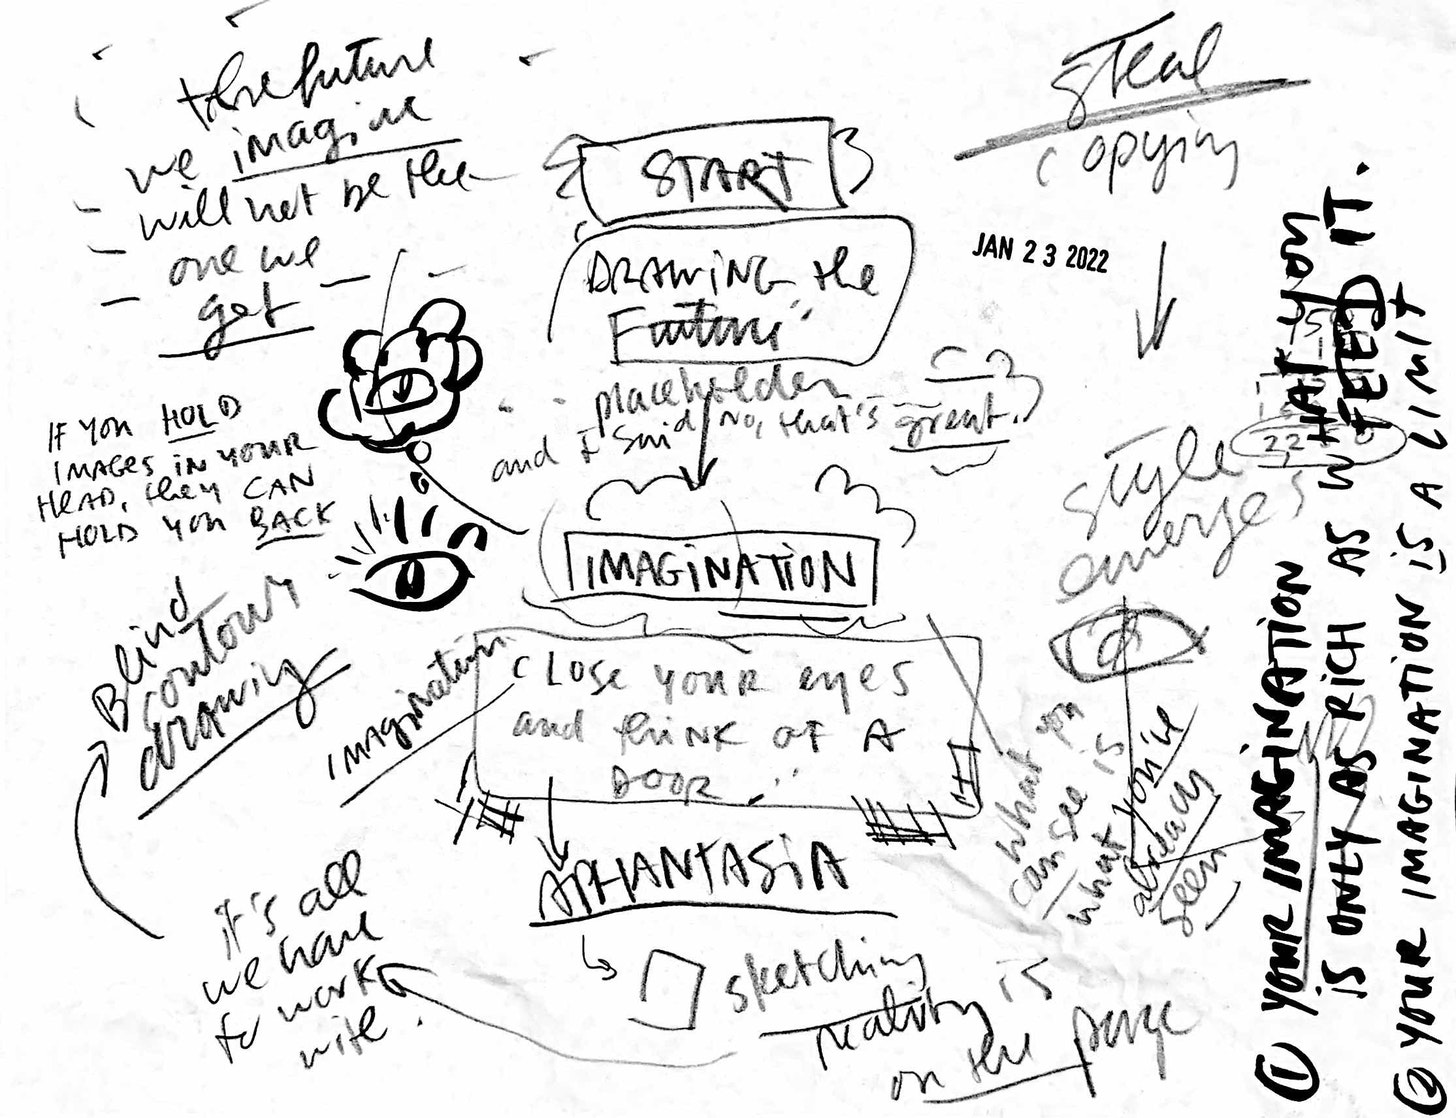 the future
we imagine
will not be the
one we
get
START
DRAWING the
Future
placeholder
and I said No, that's great.
steal
copying
JAN 23 2022
IF YOU HOLD
IMAGES IN YOUR
HEAD, they CAN
HOLD you BACK
style
emerges
22
IMAGINATION
Blind
contour
drawing
IMAGINATION
CLOSE your eyes
and think of A
DOOR
what you
can see is
what you've
already
seen
APHANTASIA
it's all
we have
to work
with.
sketching
reality is
on the page
① YOUR IMAGINATION
IS ONLY AS RICH AS WHAT YOU
FEED IT.
② YOUR IMAGINATION IS A LIMIT